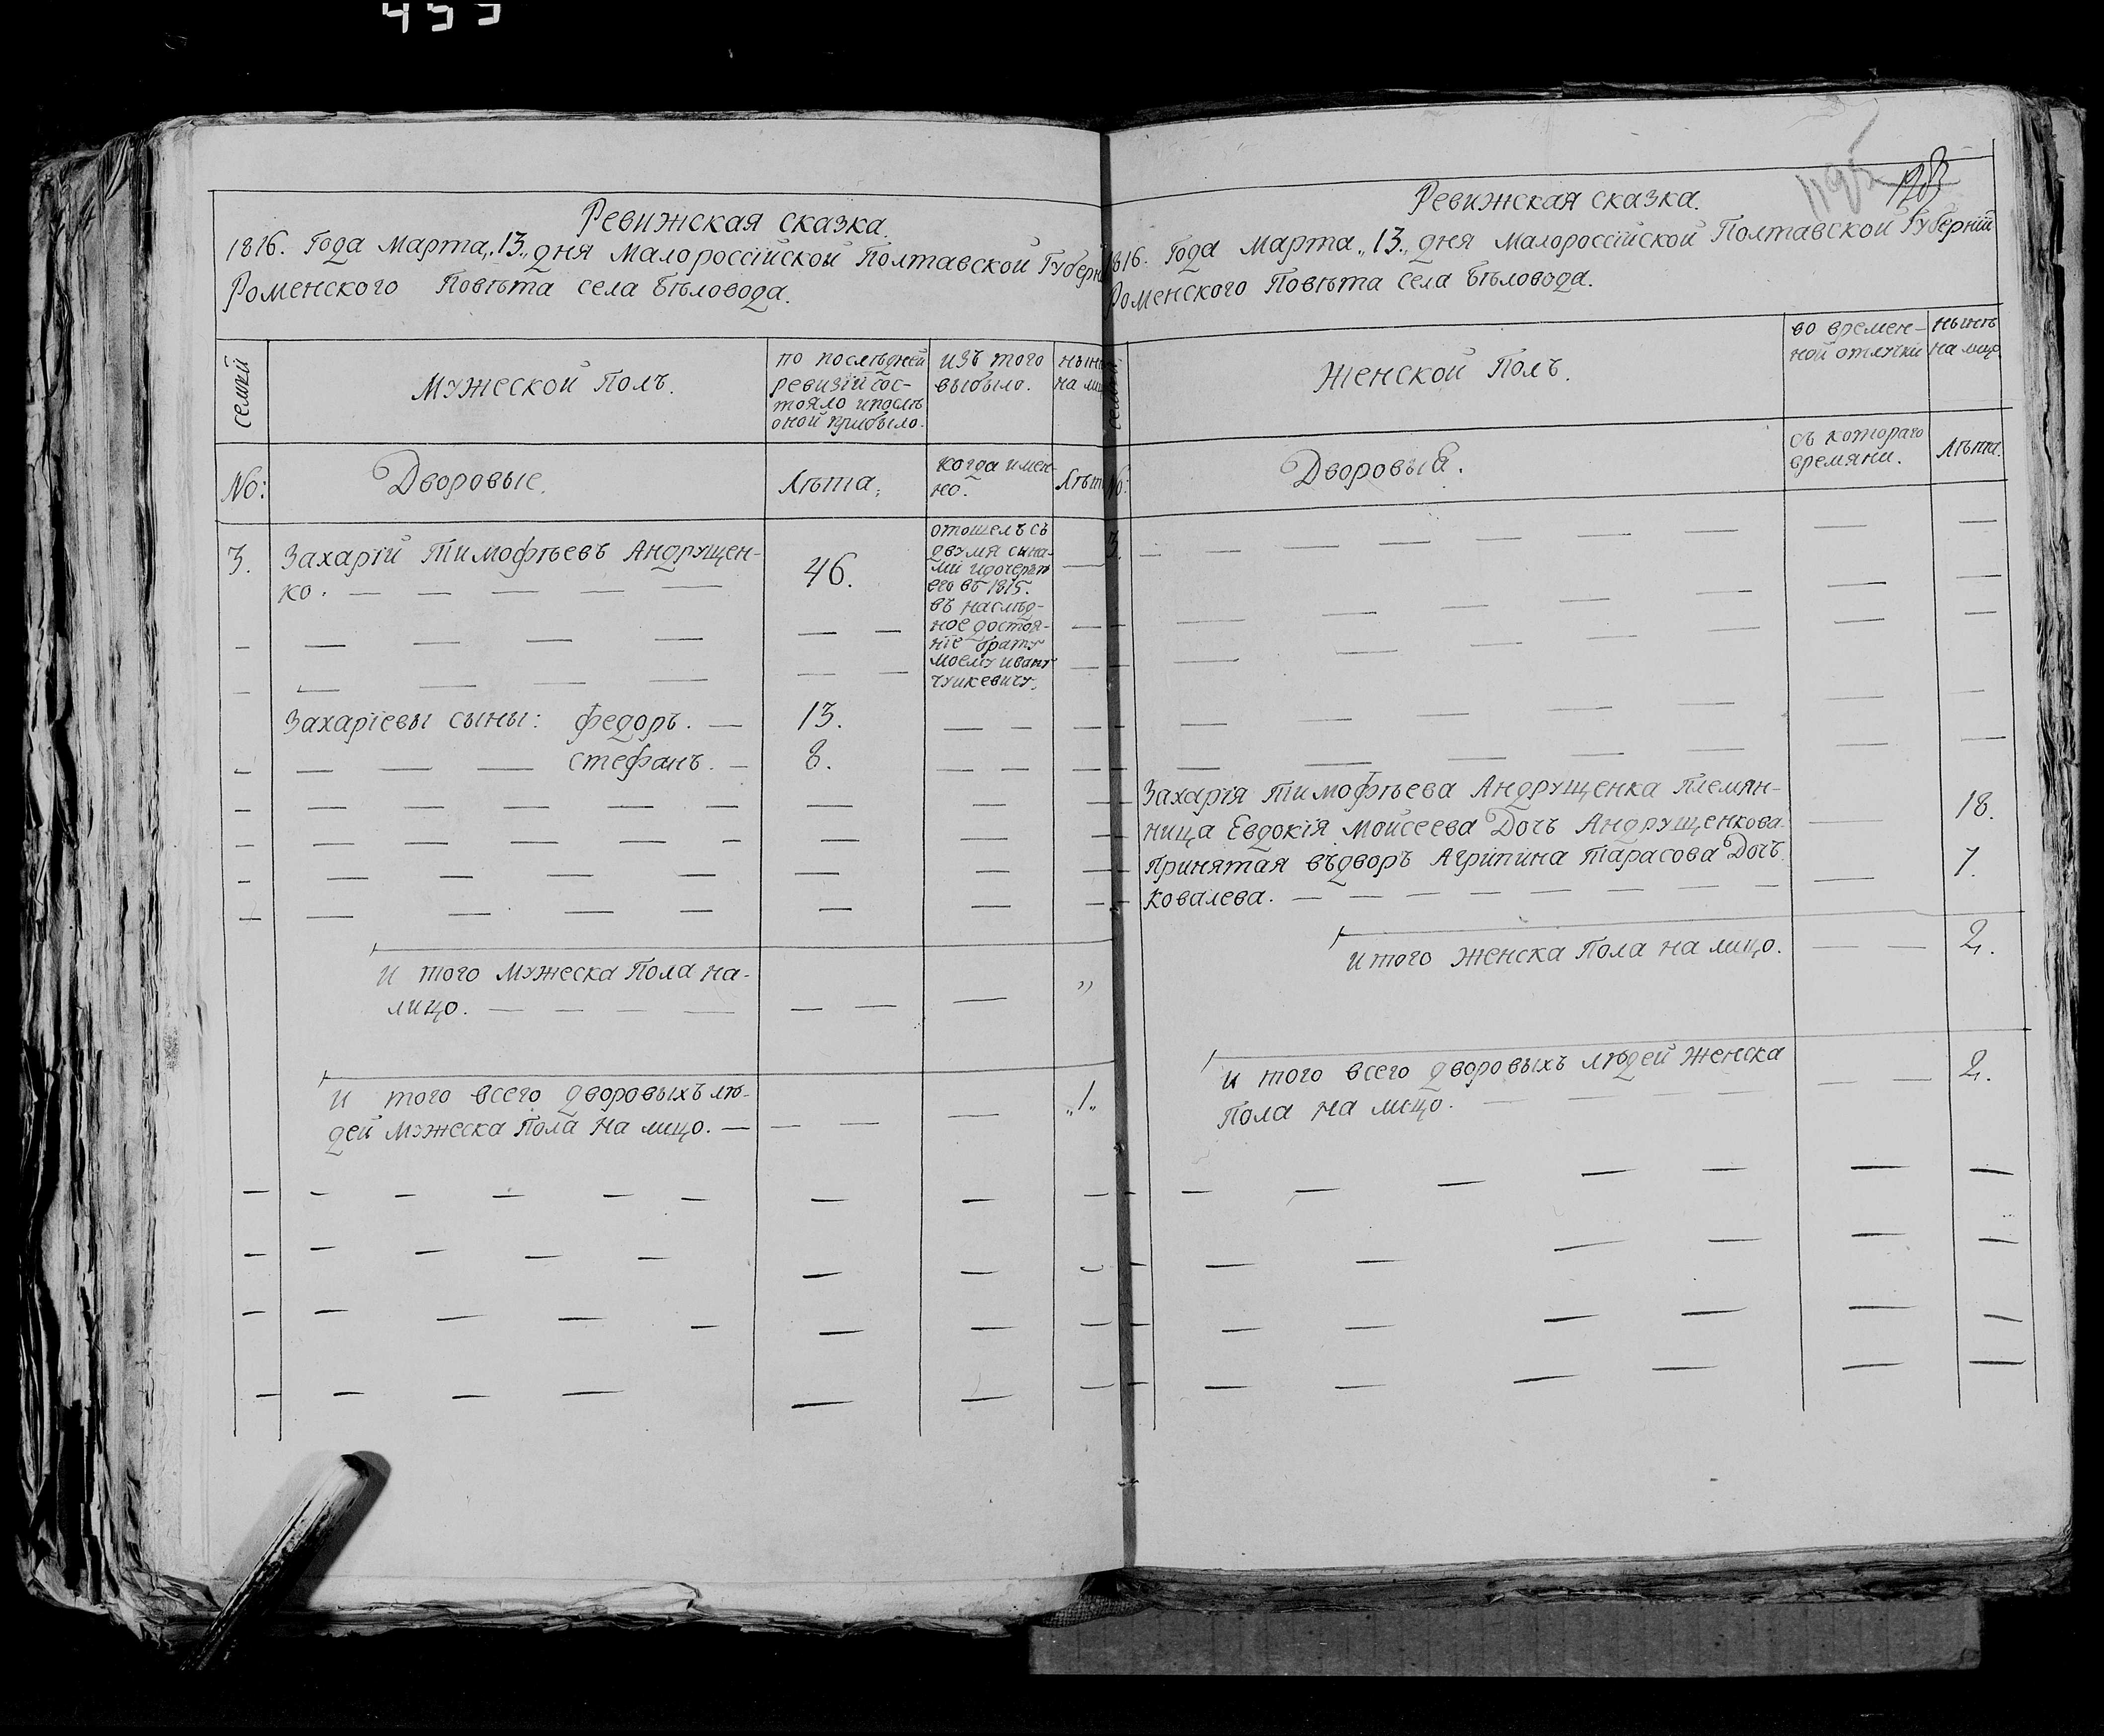 455
Ревижская сказка.
1816. Года Марта „13„ дня Малороссійской Полтавской Губерн
Роменского Повѣта села Бѣловода.
семьи
Мужеской Полъ.
по послѣдней
ревизіи сос-
тояло и послѣ
оной прибыло.
изъ того
выбыло.
нынѣ
на лиц
No:
Дворовые.
Лѣта.
когда имен-
но.
Лѣт
3.
Захарій Тимофѣевъ Андрущен-
ко.
46.
отошелъ съ
двумя сына-
ми и дочерью
его въ 1815.
въ наслѣд-
ное достоя-
ніе брату
моему ивану
Захаріевы сыны: Федоръ.
13.
Стефанъ.
8.
И того Мужеска Пола на-
лицо.
„
И того всего дворовыхъ лю-
дей Мужеска Пола на лицо.
„1„
1195
Ревижская сказка.
1816. Года Марта „13„ дня Малороссійской Полтавской Губерніи
Роменского Повѣта села Бѣловода.
Женской Полъ.
во времен-
ной отлучки
нынѣ
на лицо
No:
Дворовыя.
съ котораго
времяни.
Лѣта.
3.
Захарія Тимофѣева Андрущенка Племян-
ница Евдокія Моисеева Дочъ Андрущенкова.
18.
Принятая въдворъ Агрипина Тарасова Дочъ
Ковалева.
7.
И того Женска Пола на лицо.
2.
И того всего дворовыхъ людей Женска
Пола на лицо.
2.